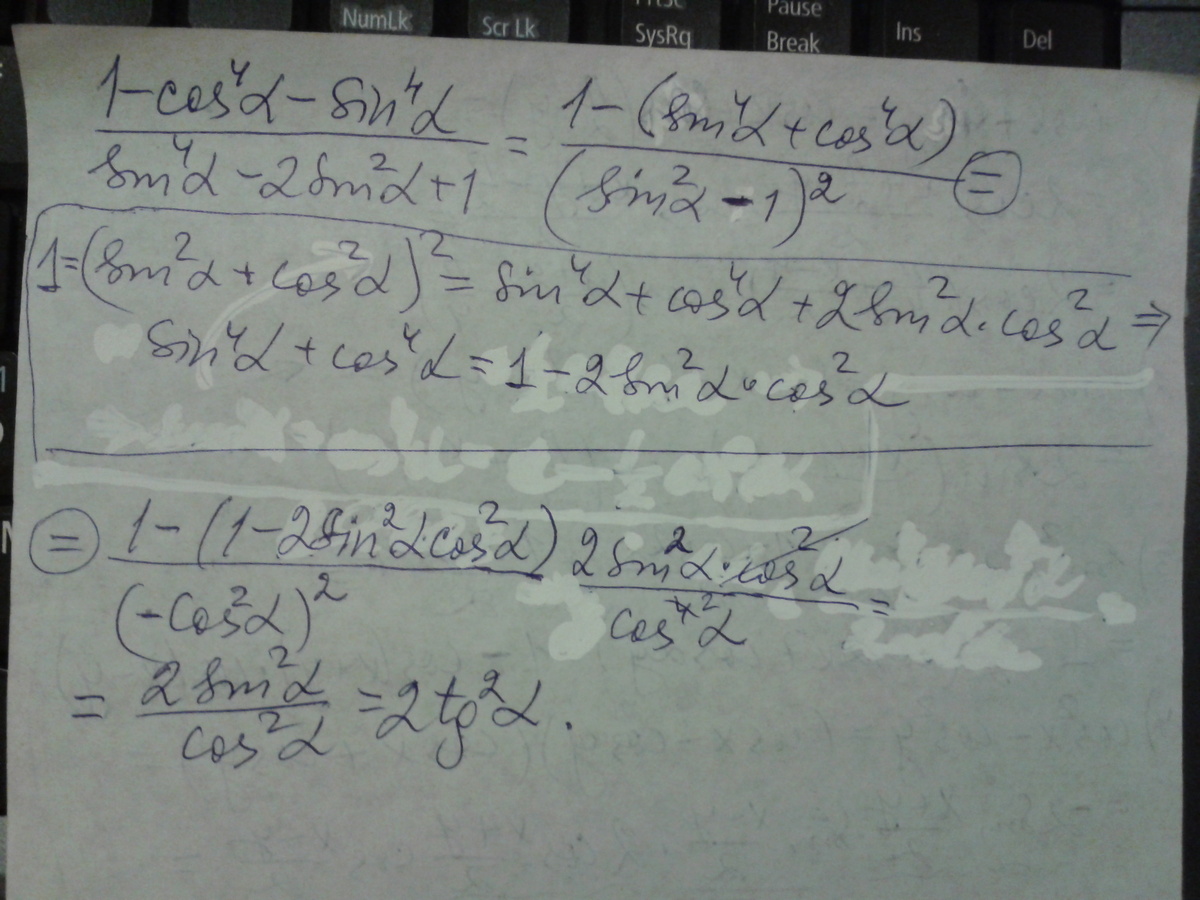 NumLk Scr Lk PrtSc SysRq Pause Break Ins Del
(1-cos⁴α-sin⁴α)/(sin⁴α-2sin²α+1) = (1-(sin⁴α+cos⁴α))/(sin²α-1)² =
1=(sin²α+cos²α)²=sin⁴α+cos⁴α+2sin²α·cos²α ⇒
sin⁴α+cos⁴α=1-2sin²α·cos²α
= (1-(1-2sin²α·cos²α))/(-cos²α)² (2sin²α·cos²α)/(cos⁴ ²α) =
= (2sin²α)/(cos²α) = 2tg²α.